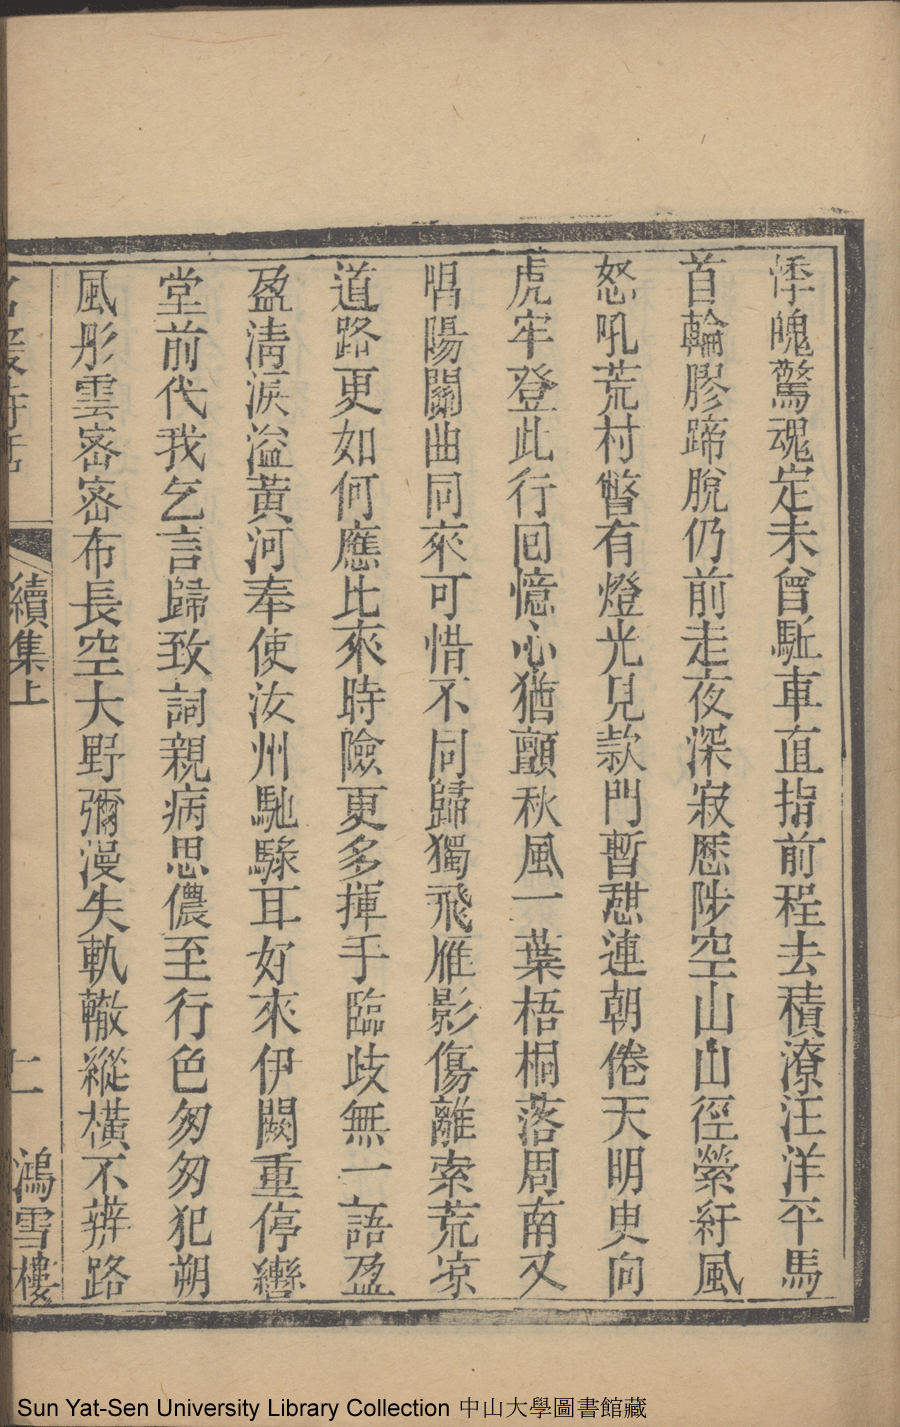 悸魄驚魂定未曾駈車直指前程去積潦汪洋平馬
首輪膠蹄脫仍前走夜深寂歷陟空山山徑縈紆風
怒吼荒村瞥有燈光見款門暫憇連朝倦天明更向
虎牢登此行回憶心猶顫秋風一葉梧桐落周南又
唱陽關曲同來可惜不同歸獨飛雁影傷離索荒凉
道路更如何應比來時險更多揮手臨歧無一語盈
盈淸淚溢黃河奉使汝州馳騄耳好來伊闕重停轡
堂前代我乞言歸致詞親病思儂至行色匆匆犯朔
風彤雲密密布長空大野彌漫失軌轍縱橫不辨路
名媛詩話
續集上
鴻雪樓
Sun Yat-Sen University Library Collection 中山大學圖書館藏